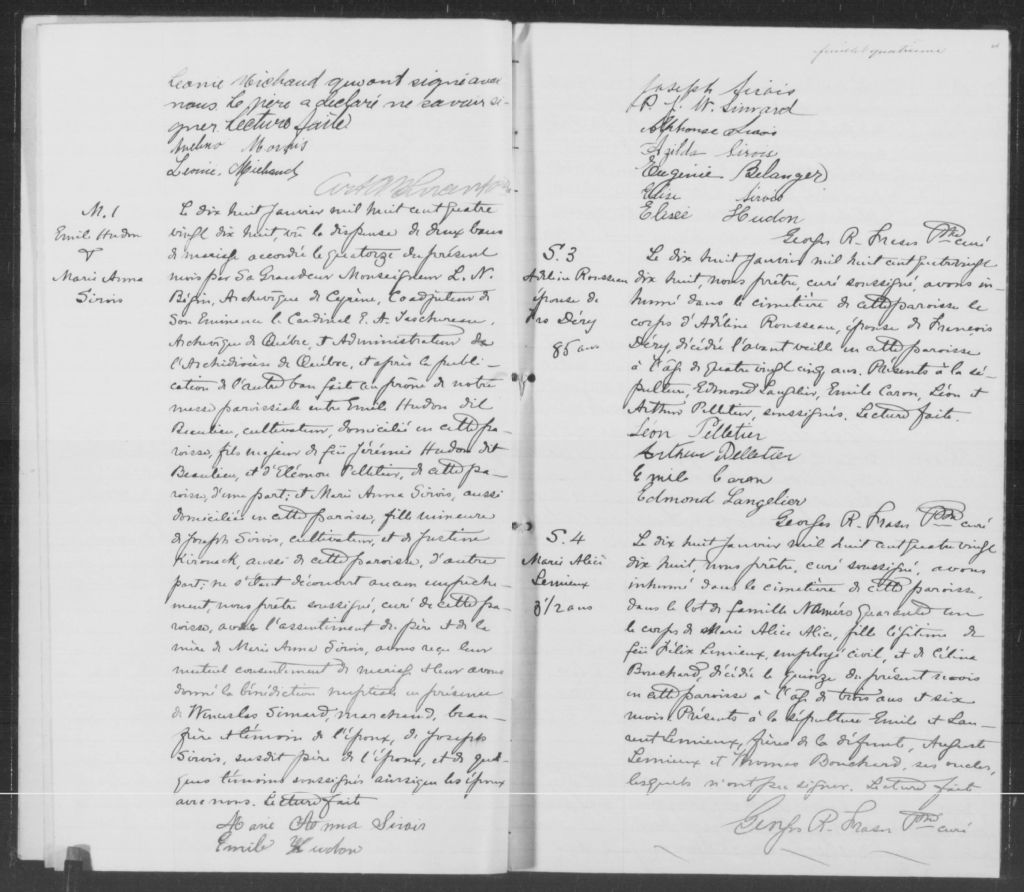 Leonie Michaud qui ont signé avec
nous. Le père a déclaré ne savoir si-
gner. Lecture faite
Leonie Michaud
M. 1
Emile Hudon
&
Marie Anna
Sirois
Le dix huit janvier mil huit cent quatre
vingt dix huit, vû la dispense de deux bans
de mariage accordée le quatorze du présent
mois par Sa Grandeur Monseigneur L. N.
Bégin, Archevêque de Cyrène, Coadjuteur de
Son Eminence le Cardinal E. A. Taschereau,
Archevêque de Québec, et Administrateur de
l'Archidiocèse de Québec, et après la publi-
cation de l'autre ban fait au prône de notre
messe paroissiale entre Emile Hudon dit
Beaulieu, cultivateur, domicilié en cette pa-
roisse, fils majeur de feu Jérémie Hudon dit
Beaulieu, et d'Eléonore Pelletier, de cette pa-
roisse, d'une part; et Marie Anna Sirois, aussi
domiciliée en cette paroisse, fille mineure
de Joseph Sirois, cultivateur, et de Justine
Kirouack, aussi de cette paroisse, d'autre
part; ne s'étant découvert aucun empêche-
ment, nous prêtre soussigné, curé de cette pa-
roisse, avec l'assentiment du père et de la
mère de Marie Anna Sirois, avons reçu leur
mutuel consentement de mariage et leur avons
donné la bénédiction nuptiale en présence
de Wenceslas Simard, marchand, beau-
frère et témoin de l'époux, de Joseph
Sirois, susdit père de l'épouse, et de quel-
ques témoins soussignés ainsi que les époux
avec nous. Lecture faite
Marie Anna Sirois
Emile Hudon
feuillet quatrième
Joseph Sirois
P. J. W. Simard
Alphonse Sirois
Azilda Sirois
Eugenie Belanger
Elise Sirois
Elisée Hudon
Georges R. Fraser Ptre curé
S. 3
Adéline Rousseau
épouse de
Frs Déry
85 ans
Le dix huit janvier mil huit cent quatre vingt
dix huit, nous prêtre, curé soussigné, avons in-
humé dans le cimetière de cette paroisse le
corps d'Adéline Rousseau, épouse de François
Déry, décédée l'avant veille en cette paroisse
à l'âge de quatre vingt cinq ans. Présents à la sé-
pulture, Edmond Langelier, Emile Caron, Léon et
Arthur Pelletier, soussignés. Lecture faite.
Léon Pelletier
Arthur Pelletier
Emile Caron
Edmond Langelier
Georges R. Fraser Ptre curé
S. 4
Marie Alice
Lemieux
3 1/2 ans
Le dix huit janvier mil huit cent quatre vingt
dix huit, nous prêtre, curé soussigné, avons
inhumé dans le cimetière de cette paroisse,
dans le lot de famille Numéro quarante un
le corps de Marie Alice Alice, fille légitime de
feu Félix Lemieux, employé civil, et de Célina
Bouchard, décédée le quinze du présent mois
en cette paroisse à l'âge de trois ans et six
mois. Présents à la sépulture Emile et Lau-
rent Lemieux, frères de la défunte, Auguste
Lemieux et Thomas Bouchard, ses oncles,
lesquels n'ont pu signer. Lecture faite
Georges R. Fraser Ptre curé